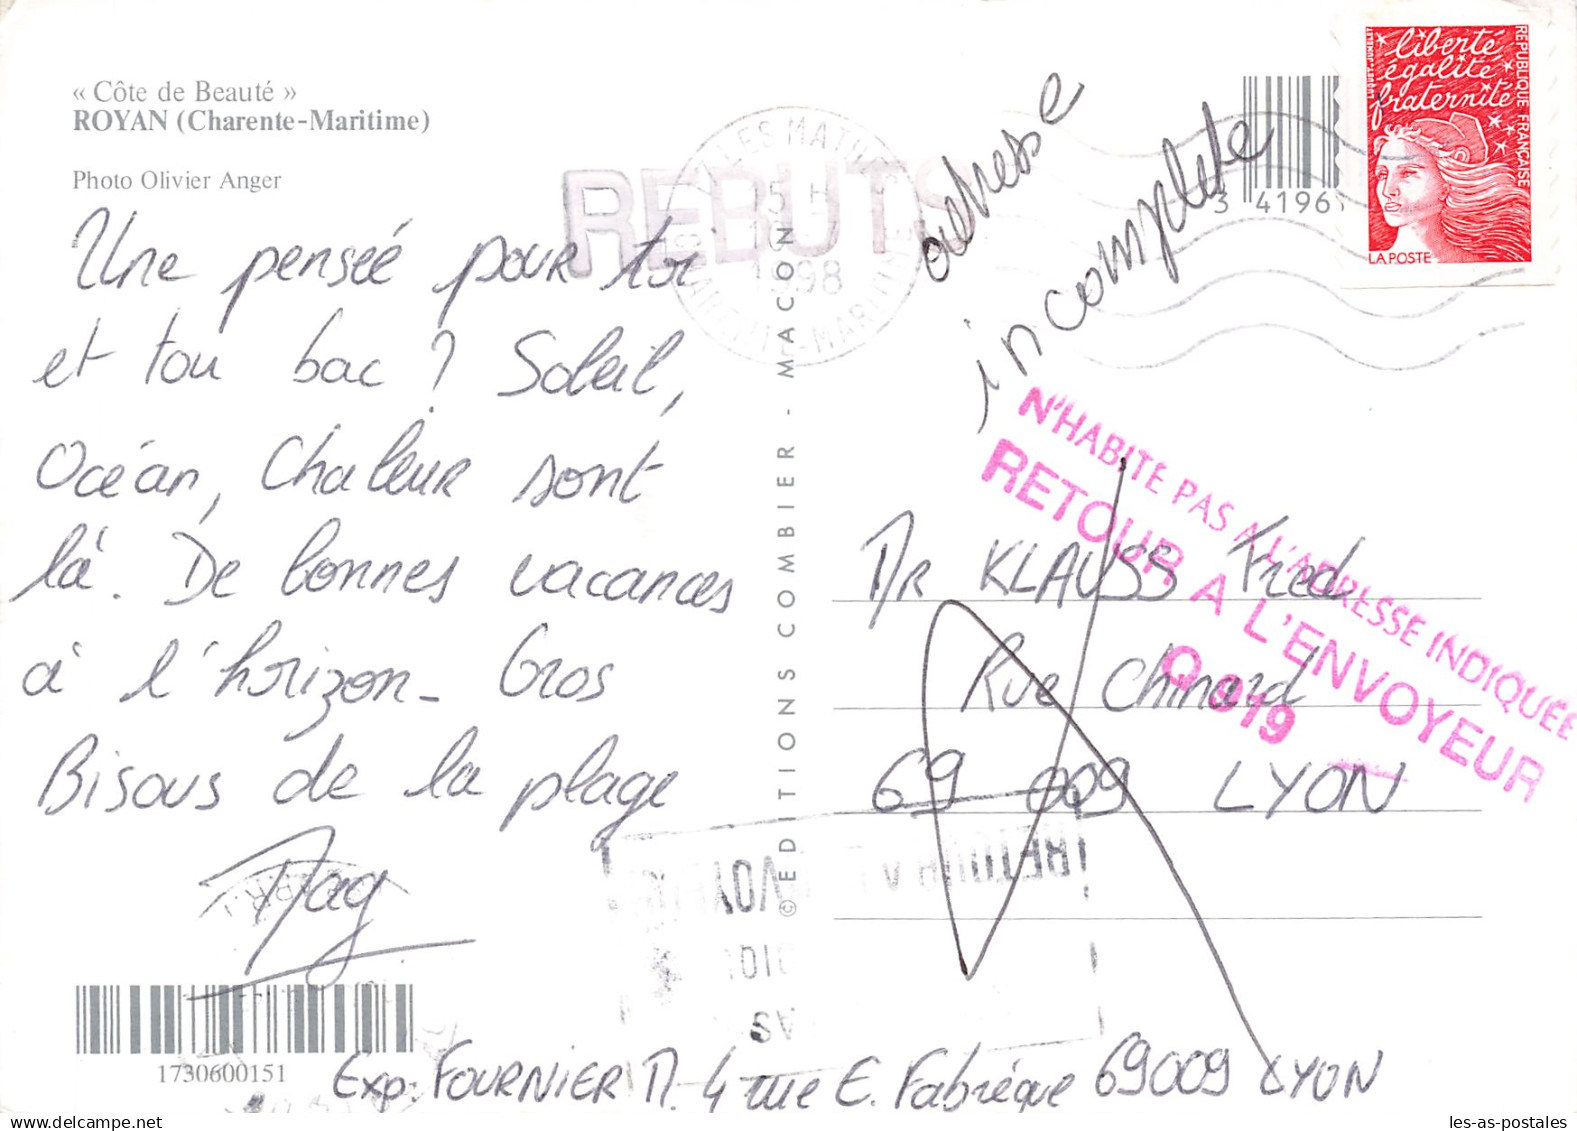 « Côte de Beauté »
ROYAN (Charente-Maritime)
Photo Olivier Anger
Une pensée pour toi
et tou bac ? Soleil,
Océan, Chaleur sont
là. De bonnes vacances
à l'horizon_ Gros
Bisous de la plage
Mag
1730600151
Exp: FOURNIER M. 4 rue E. Fabrégue 69009 LYON
© EDITIONS COMBIER - MACON
REBUTS
LES MATHES
1998
adresse
incomplete
3 4196
liberté
égalité
fraternité
REPUBLIQUE FRANÇAISE
LA POSTE
N'HABITE PAS A L'ADRESSE INDIQUÉE
RETOUR A L'ENVOYEUR
Q 919
Mr KLAUSS Fred
Rue Chinard
69 009 LYON
RETOUR A L'ENVOYEUR
les-as-postales.com